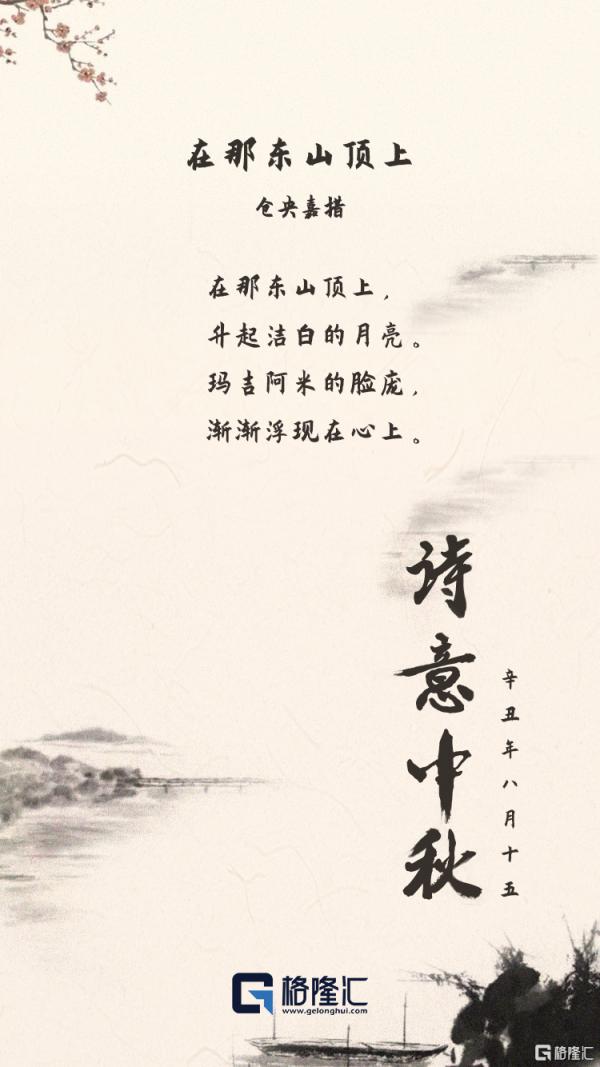 在那东山顶上
仓央嘉措
在那东山顶上，
升起洁白的月亮。
玛吉阿米的脸庞，
渐渐浮现在心上。
诗意中秋
辛丑年八月十五
格隆汇
www.gelonghui.com
格隆汇